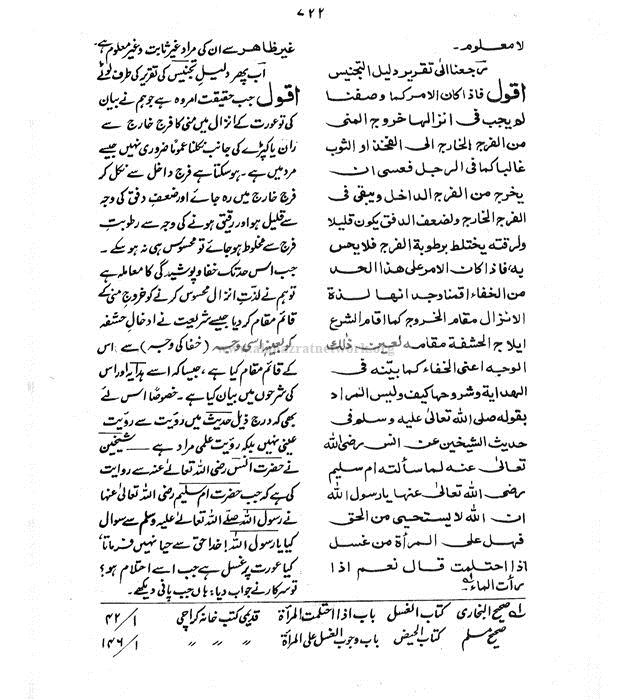 ۷۲۲
لا معلوم۔
رجعنا الی تقریر دلیل التجنیس
اقول فاذا کان الامر کما وصفنا
لم یجب فی انزالها خروج المنی
من الفرج الخارج الی الفخذ او الثوب
غالبا کما فی الرجل فعسی ان
یخرج من الفرج الداخل ویبقی فی
الفرج الخارج ولضعف الدفق یکون قلیلا
ولرقته یختلط برطوبة الفرج فلا یحس
به فاذا کان الامر علی هذا الحد
من الخفاء اقمنا وجدانها لذة
الانزال مقام الخروج کما اقام الشرع
ایلاج الحشفة مقامه لعین ذلك
الوجه اعنی الخفاء کما بینه فی
الهدایة وشروحها کیف ولیس المراد
بقوله صلی الله تعالیٰ علیه وسلم فی
حدیث الشیخین عن انس رضی الله
تعالیٰ عنه لما سألته ام سلیم
رضی الله تعالیٰ عنها یارسول الله
ان الله لا یستحیی من الحق
فهل علی المرأة من غسل
اذا احتلمت قال نعم اذا
رأت الماء؎۱
غیر ظاہر سے ان کی مراد غیر ثابت و غیر معلوم ہے۔
اَب پھر دلیلِ تجنیس کی تقریر کی طرف لوٹے
اقول جب حقیقت امر وہ ہے جو ہم نے بیان
کی تو عورت کے انزال میں منی کا فرج خارج سے
ران یا کپڑے کی جانب نکلنا عمومًا ضروری نہیں جیسے
مرد میں ہے۔ ہوسکتا ہے فرج داخل سے نکل کر
فرج خارج میں رہ جائے اور ضعفِ دفق کی وجہ
سے قلیل ہو اور رقیق ہونے کی وجہ سے رطوبتِ
فرج سے مخلوط ہوجائے تو محسوس ہی نہ ہو سکے۔
جب اس حد تک خفا و پوشیدگی کا معاملہ ہے
تو ہم نے لذتِ انزال محسوس کرنے کو خروجِ منی کے
قائم مقام کر دیا جیسے شریعت نے ادخالِ حشفہ
کو بعینہٖ اسی وجہ (خفا کی وجہ) سے اس
کے قائم مقام کیا ہے، جیسا کہ اسے ہدایہ اور اس
کی شرحوں میں بیان کیا ہے۔ خصوصًا اس لئے
بھی کہ درج ذیل حدیث میں رؤیت سے رؤیت
عینی نہیں بلکہ رؤیت علمی مراد ہے شیخین
نے حضرت انس رضی اللہ تعالےٰ عنہ سے روایت
کی ہے کہ جب حضرت ام سلیم رضی اللہ تعالیٰ عنہا
نے رسول اللہ صلے اللہ تعالیٰ علیہ وسلم سے سوال
کیا یارسول اللہ! خدا حق سے حیا نہیں فرماتا،
کیا عورت پر غسل ہے جب اسے احتلام ہو؟
تو سرکار نے جواب دیا: ہاں جب پانی دیکھے۔
؎۱ صحیح البخاری کتاب الغسل باب اذا احتلمت المرأة قدیمی کتب خانہ کراچی ۱/ ۴۲
صحیح مسلم کتاب الحیض باب وجوب الغسل علی المرأة 〃 〃 〃 ۱/ ۱۴۶